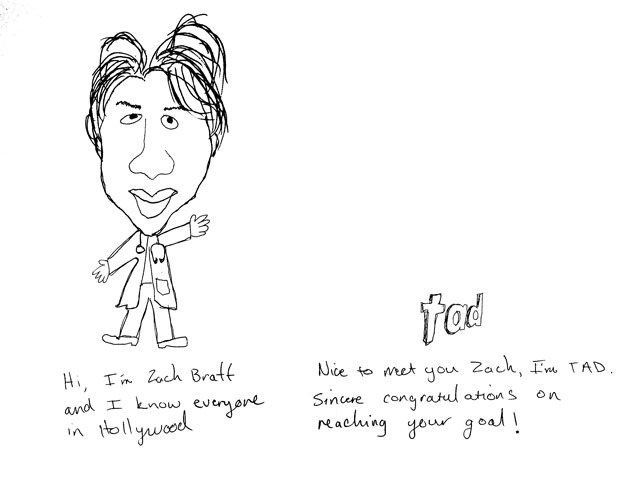 tad
Hi, I'm Zach Braff
and I know everyone
in Hollywood
Nice to meet you Zach, I'm TAD.
Sincere congratulations on
reaching your goal!